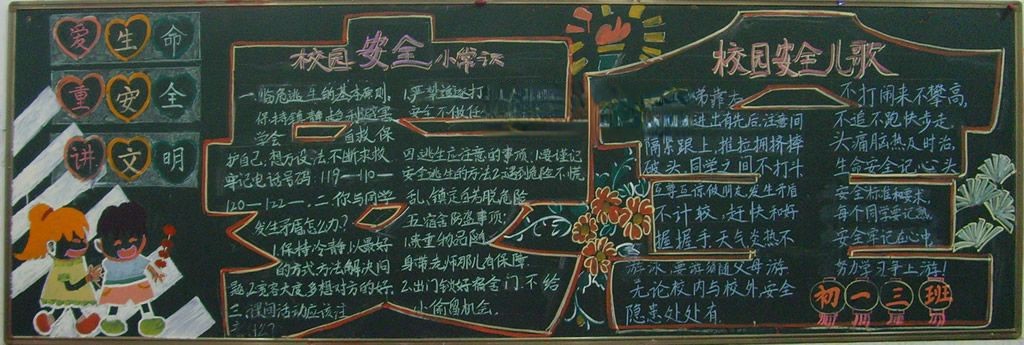 爱生命
重安全
讲文明
校园安全小常识
一、临危逃生的基本原则,
保持镇静
学会 自救、保
护自己,想方设法不断求救
牢记电话号码:119—110—
120—122—.二、你与同学
发生矛盾怎么办?
1.保持冷静,以最好
的方式方法解决问
题 2.宽容大度多想对方的好.
三、课间活动应该注
1.严禁追逐打
四.逃生应注意的事项:1.要谨记
安全逃生的方法2.遇到危险不慌
乱、镇定
五.宿舍防盗事项:
1.贵重物品随
身带老师那儿有保障.
2.出门锁好宿舍门.不给
小偷留机会.
校园安全儿歌
进出有先后.注意间
隔紧跟上,推拉拥挤摔
破头,同学之间不打斗
互尊互谅做朋友,发生矛盾
不计较,赶快和好
握握手,天气炎热不
游泳,要游须随父母游
无论校内与校外,安全
隐患处处有
不打闹来不攀高,
不追不跑快步走,
头痛脑热及时治,
生命安全记心头
安全标准和要求,
每个同学要记熟,
安全牢记在心中
努力学习争上游!
初一三班